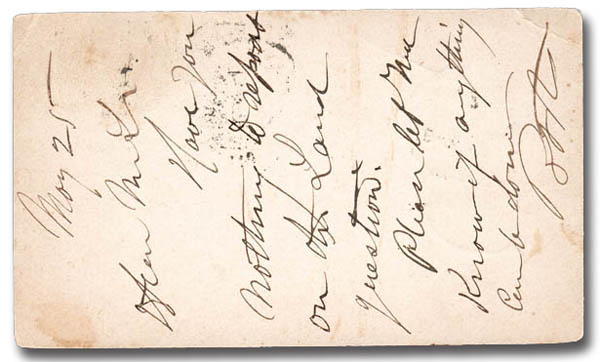 May 25
Have you
nothing to report
on the Land
question.
Please let me
know if anything
can be done